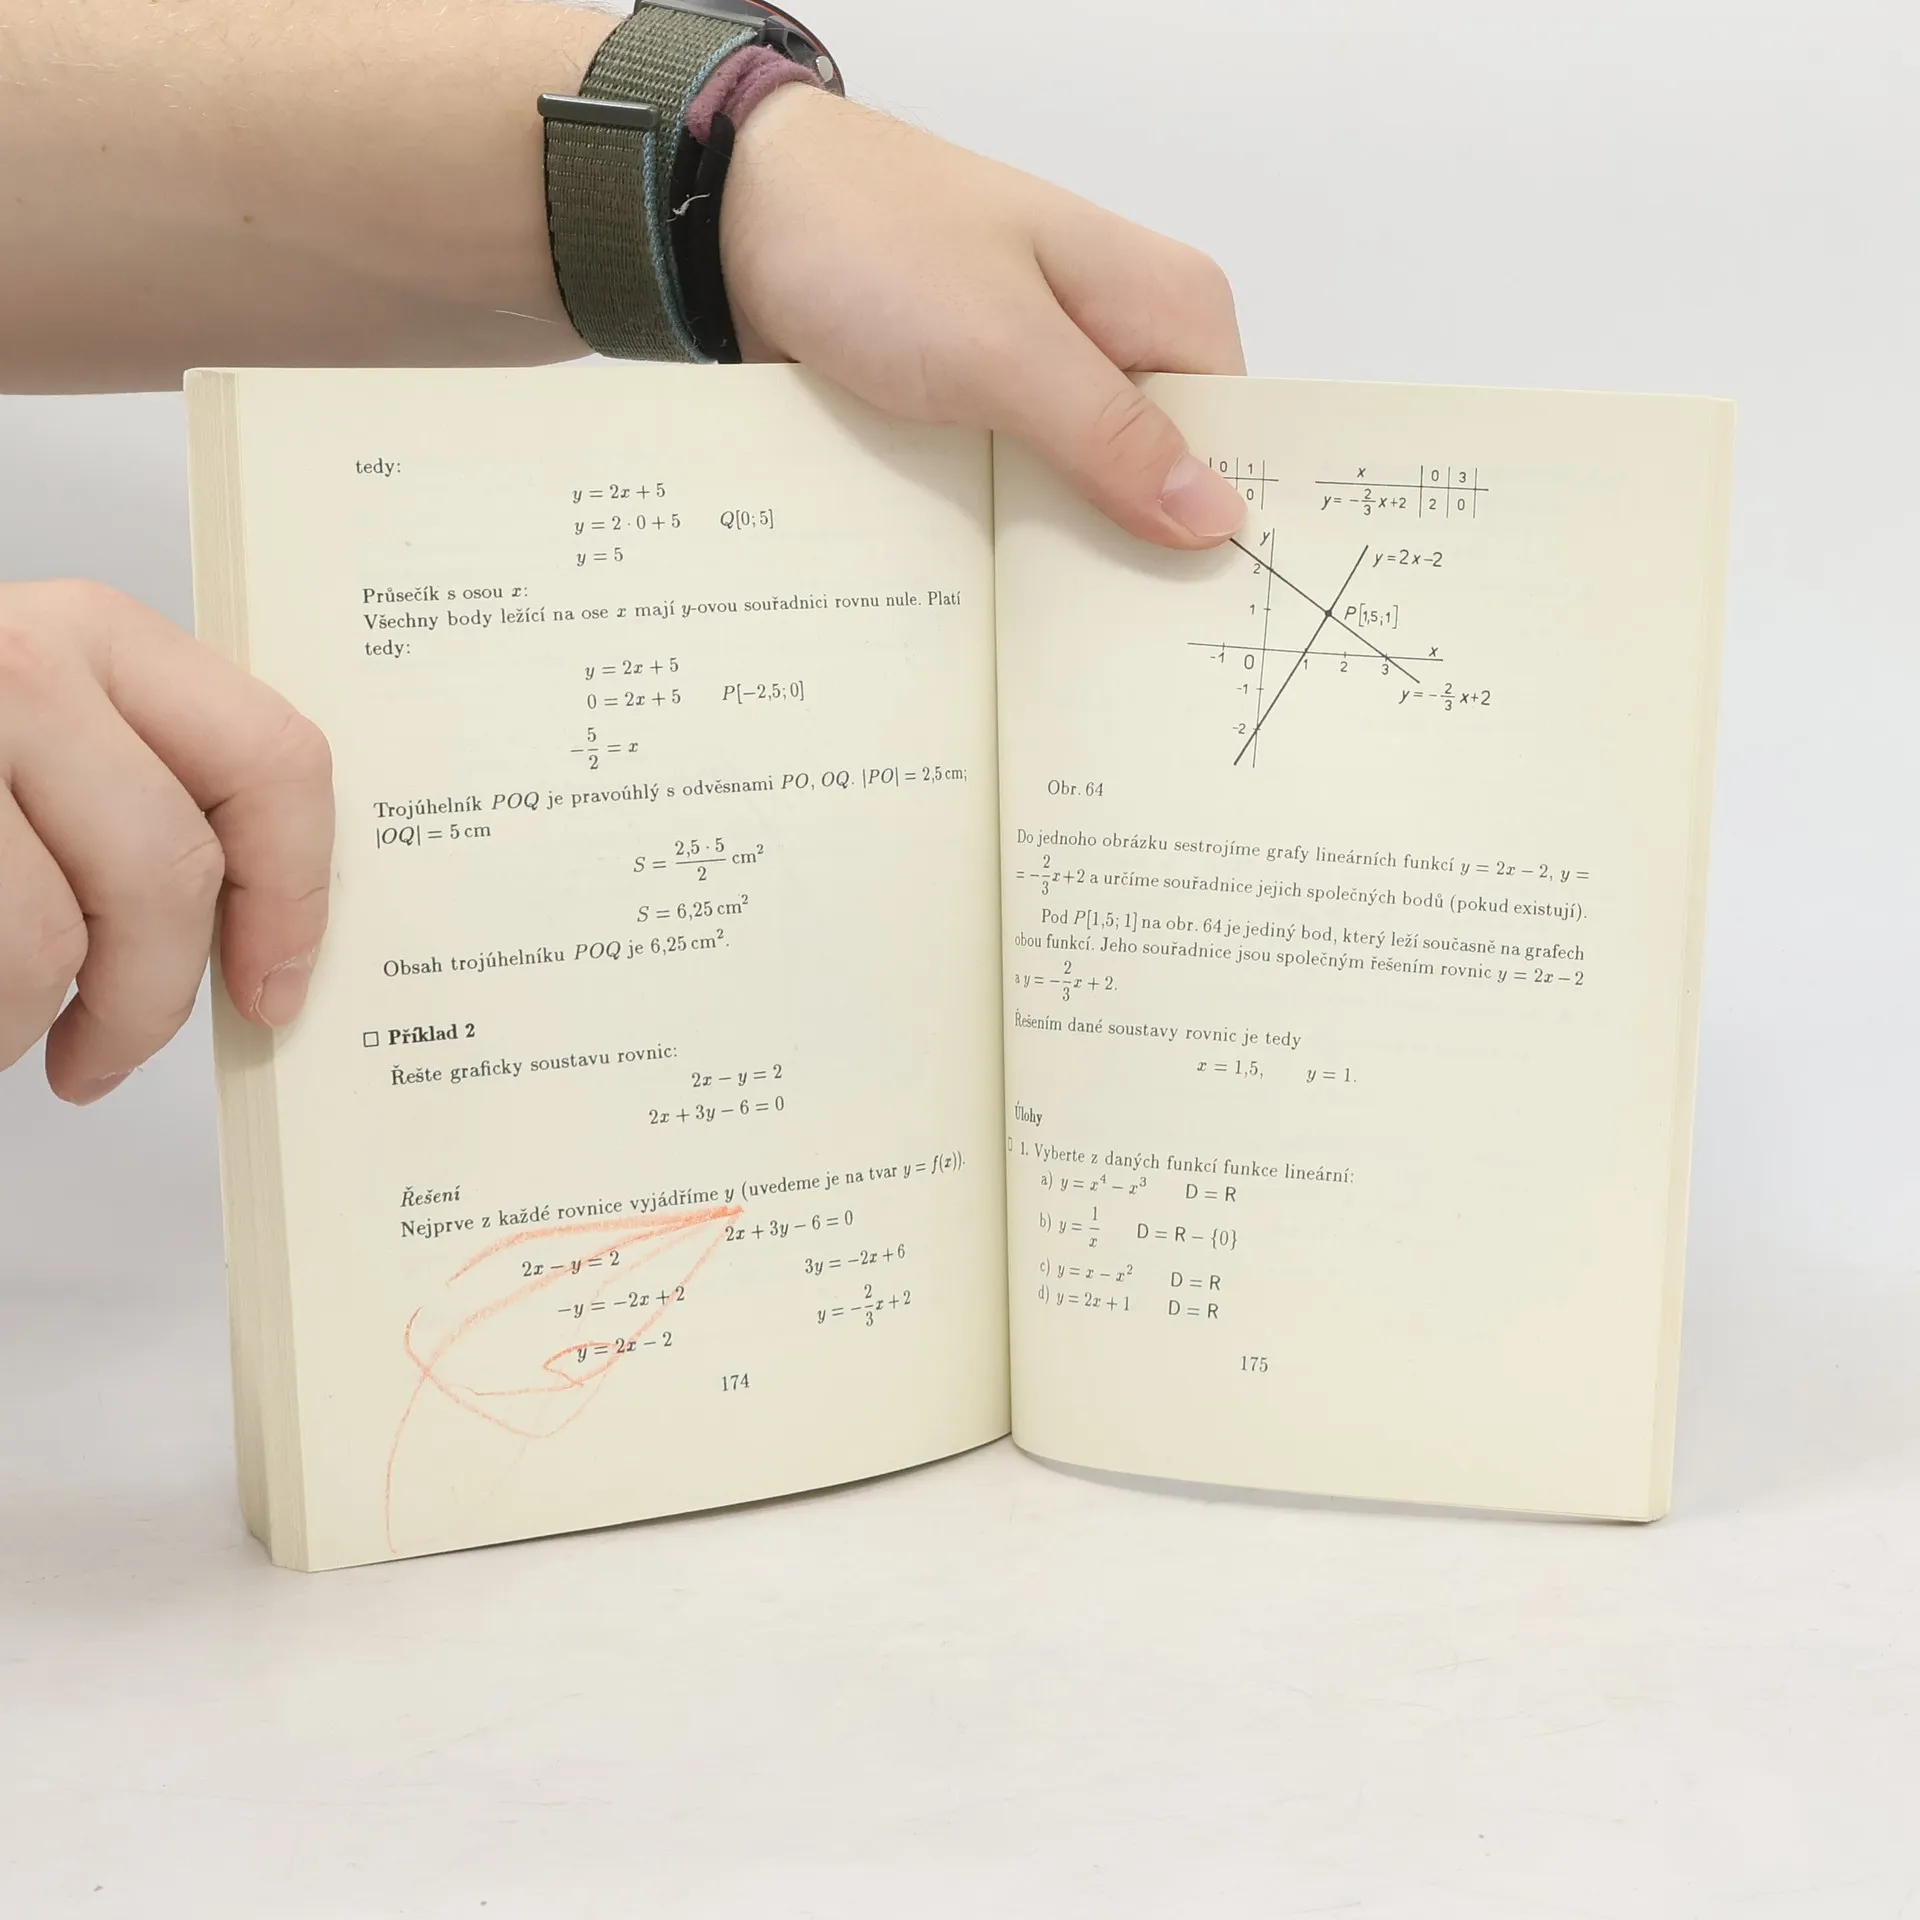 tedy:
y = 2x + 5
y = 2 · 0 + 5 Q[0; 5]
y = 5
Průsečík s osou x:
Všechny body ležící na ose x mají y-ovou souřadnici rovnu nule. Platí
tedy:
y = 2x + 5
0 = 2x + 5 P[−2,5; 0]
−5/2 = x
Trojúhelník POQ je pravoúhlý s odvěsnami PO, OQ. |PO| = 2,5 cm;
|OQ| = 5 cm
S = 2,5 · 5/2 cm²
S = 6,25 cm²
Obsah trojúhelníku POQ je 6,25 cm².
□ Příklad 2
Řešte graficky soustavu rovnic:
2x − y = 2
2x + 3y − 6 = 0
Řešení
Nejprve z každé rovnice vyjádříme y (uvedeme je na tvar y = f(x)).
2x − y = 2 2x + 3y − 6 = 0
−y = −2x + 2 3y = −2x + 6
y = 2x − 2 y = −2/3x + 2
174
0 1
0
x 0 3
y = −2/3x+2 2 0
y
y=2x−2
2
1
P[1,5;1]
x
-1 0 1 2 3
-1
y=−2/3x+2
-2
Obr. 64
Do jednoho obrázku sestrojíme grafy lineárních funkcí y = 2x − 2, y =
= −2/3x+2 a určíme souřadnice jejich společných bodů (pokud existují).
Pod P[1,5; 1] na obr. 64 je jediný bod, který leží současně na grafech
obou funkcí. Jeho souřadnice jsou společným řešením rovnic y = 2x − 2
a y = −2/3x + 2.
Řešením dané soustavy rovnic je tedy
x = 1,5, y = 1.
Úlohy
□ 1. Vyberte z daných funkcí funkce lineární:
a) y = x⁴ − x³ D = R
b) y = 1/x D = R − {0}
c) y = x − x² D = R
d) y = 2x + 1 D = R
175